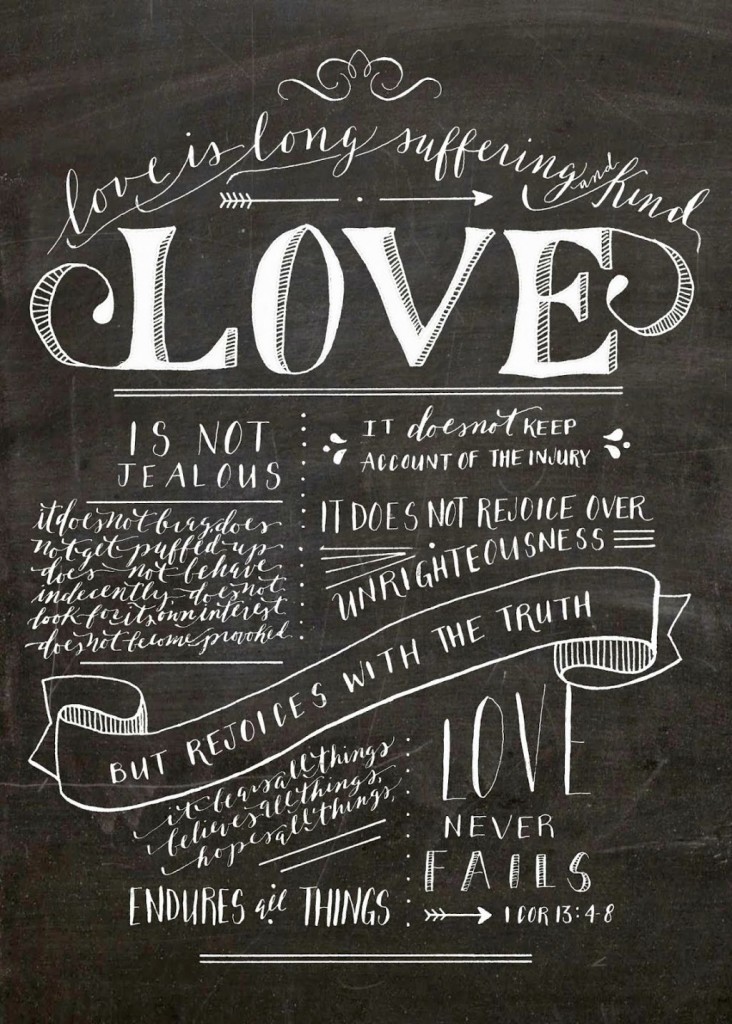 love is long suffering and kind
LOVE
IS NOT
JEALOUS
it does not brag, does
not get puffed up
does not behave
indecently, does not
look for its own interest
does not become provoked
IT does not KEEP
ACCOUNT OF THE INJURY
IT DOES NOT REJOICE OVER
UNRIGHTEOUSNESS
BUT REJOICES WITH THE TRUTH
it bears all things
believes all things,
hopes all things,
ENDURES all THINGS
LOVE
NEVER
FAILS
1 COR 13:4-8